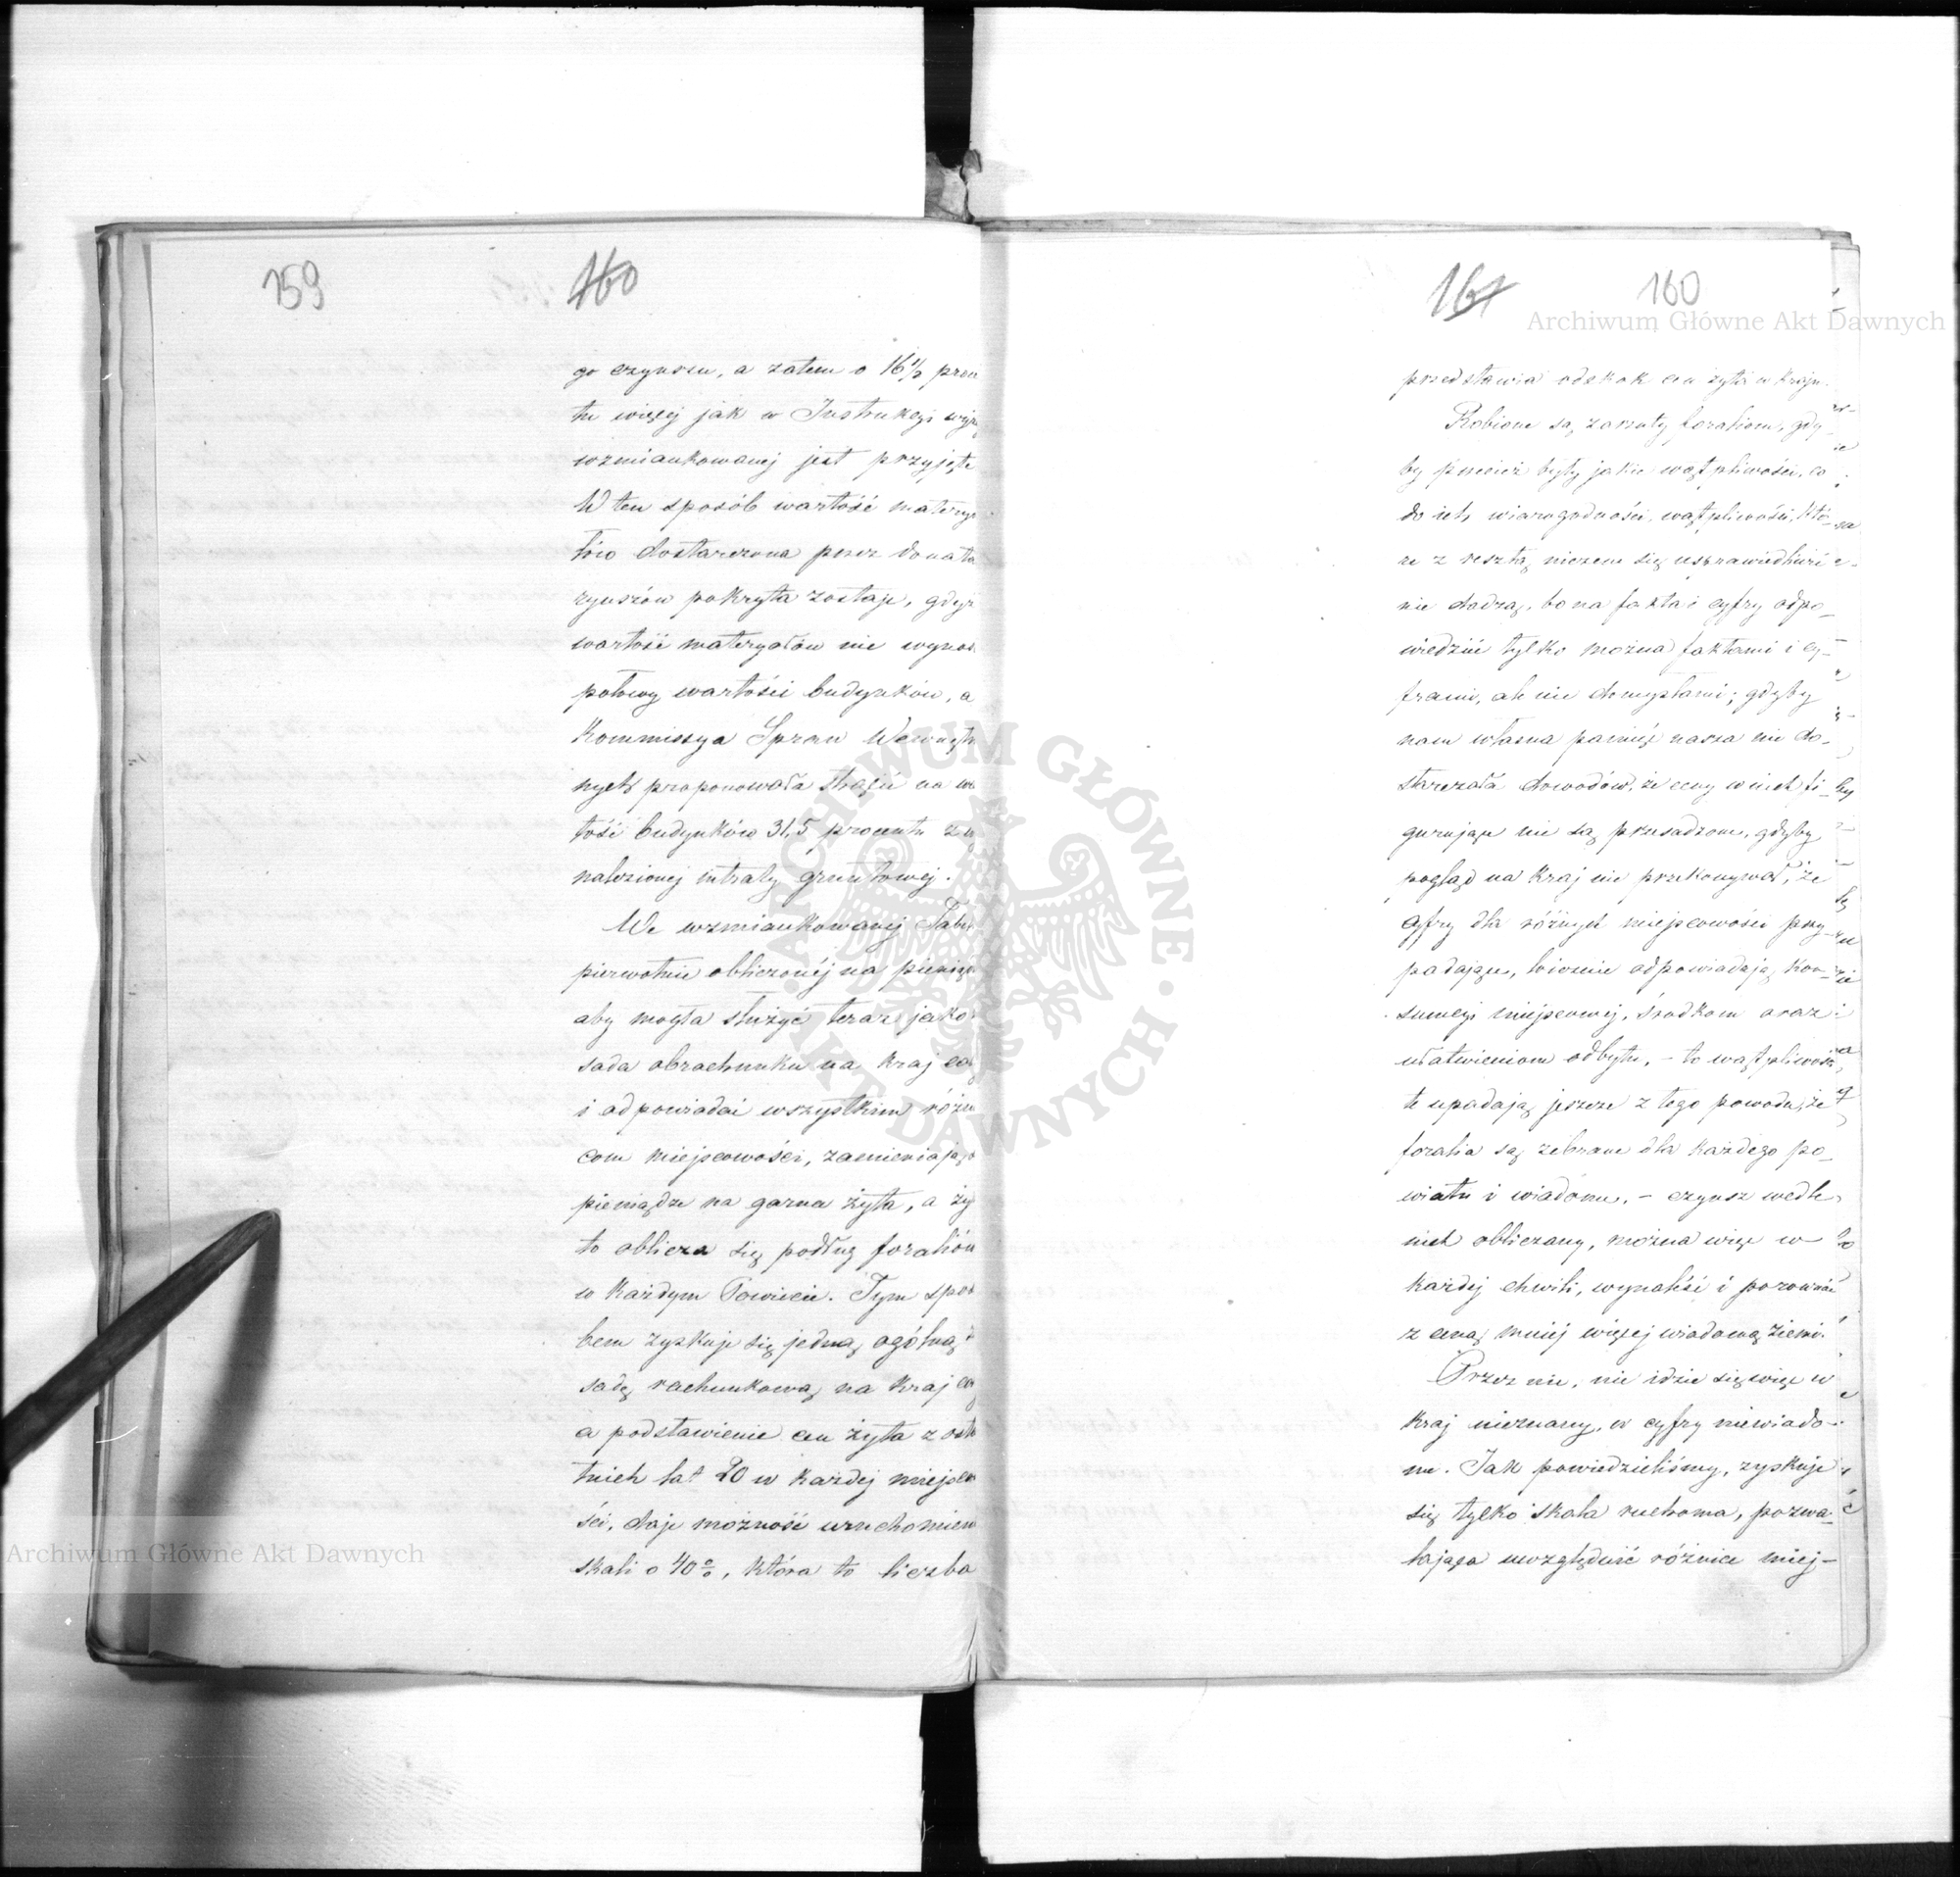 159
160
go czynszu, a zatem o 16½ procn
tu więcej jak w Instrukcyi wyż
wzmiankowanej jest przyjęte
W ten sposób wartość materya
łów dostarczona przez donata
ryuszów pokryta zostaje, gdyż
wartość materyałów nie wynos
połowy wartości budynków, a
Kommissya Spraw Wewnętr
nych proponowała strącić na wa
tość budynków 31,5 procentu z wy
nalezionej intraty gruntowej.
We wzmiankowanej Tabe
pierwotnie obliczonéj na pienią
aby mogła służyć teraz jako
sada obrachunku na kraj cał
i odpowiadać wszystkim różn
com miejscowości, zamieniając
pieniądze na garnce żyta, a ży
to oblicza się podług foraliów
w każdym Powiecie. Tym spos
bem zyskuje się jedną ogólną
sadę rachunkową na kraj ca
a podstawienie cen żyta z osta
tnich lat 20 w każdej miejsco
ści, daje możność uruchomien
skali o 40%, która to liczba
161
160
Archiwum Główne Akt Dawnych
przedstawia odskok cen żyta w kraju.
Robione są zarzuty foraliom, gdy-
by przecież były jakie wątpliwości, co
do ich wiarogodności, wątpliwości, któ-
re z resztą niczem się usprawiedliwić
nie dadzą, bo na fakta i cyfry odpo-
wiedzieć tylko można faktami i cy-
frami, ale nie domysłami; gdyby
nam własna pamięć nasza nie do-
starczała dowodów, że ceny w nich fi-
gurujące nie są przesadzone, gdyby
pogląd na kraj nie przekonywał, że
cyfry dla różnych miejscowości przy-
padające, wiernie odpowiadają kon-
sumcyi miejscowej, środkom oraz
ułatwieniom odbytu, - to wątpliwości
te upadają jeszcze z tego powodu, że
foralia są zebrane dla każdego po-
wiatu i wiadome, - czynsz wedle
nich obliczany, można więc w
każdej chwili, wynaleść i porównać
z ceną mniej więcej wiadomą ziemi.
Przez nie, nie idzie się więc w
kraj nieznany, w cyfry niewiado-
me. Jak powiedzieliśmy, zyskuje
się tylko skala ruchoma, pozwa-
lająca uwzględnić różnice miej-
ARCHIWUM GŁÓWNE
AKT DAWNYCH
Archiwum Główne Akt Dawnych